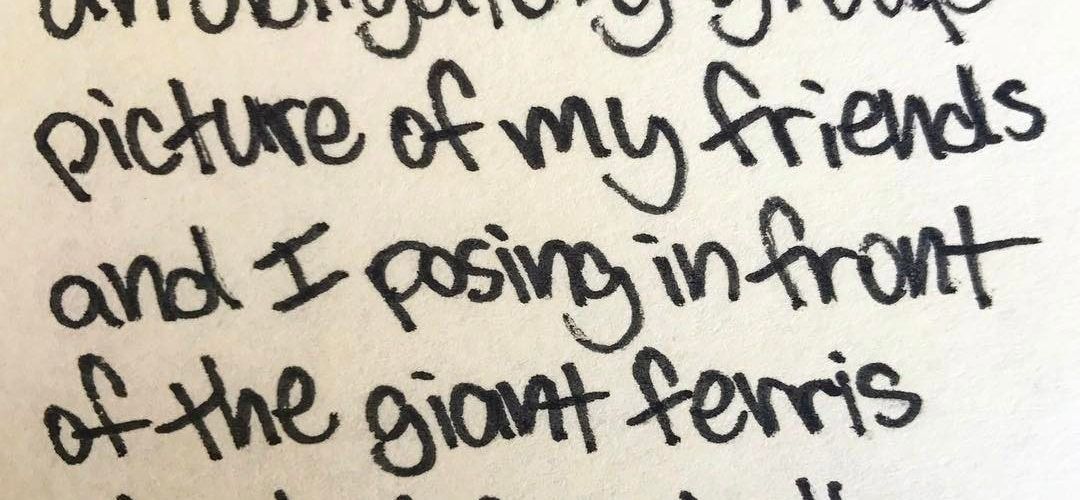 an obligatory group
picture of my friends
and I posing in front
of the giant ferris